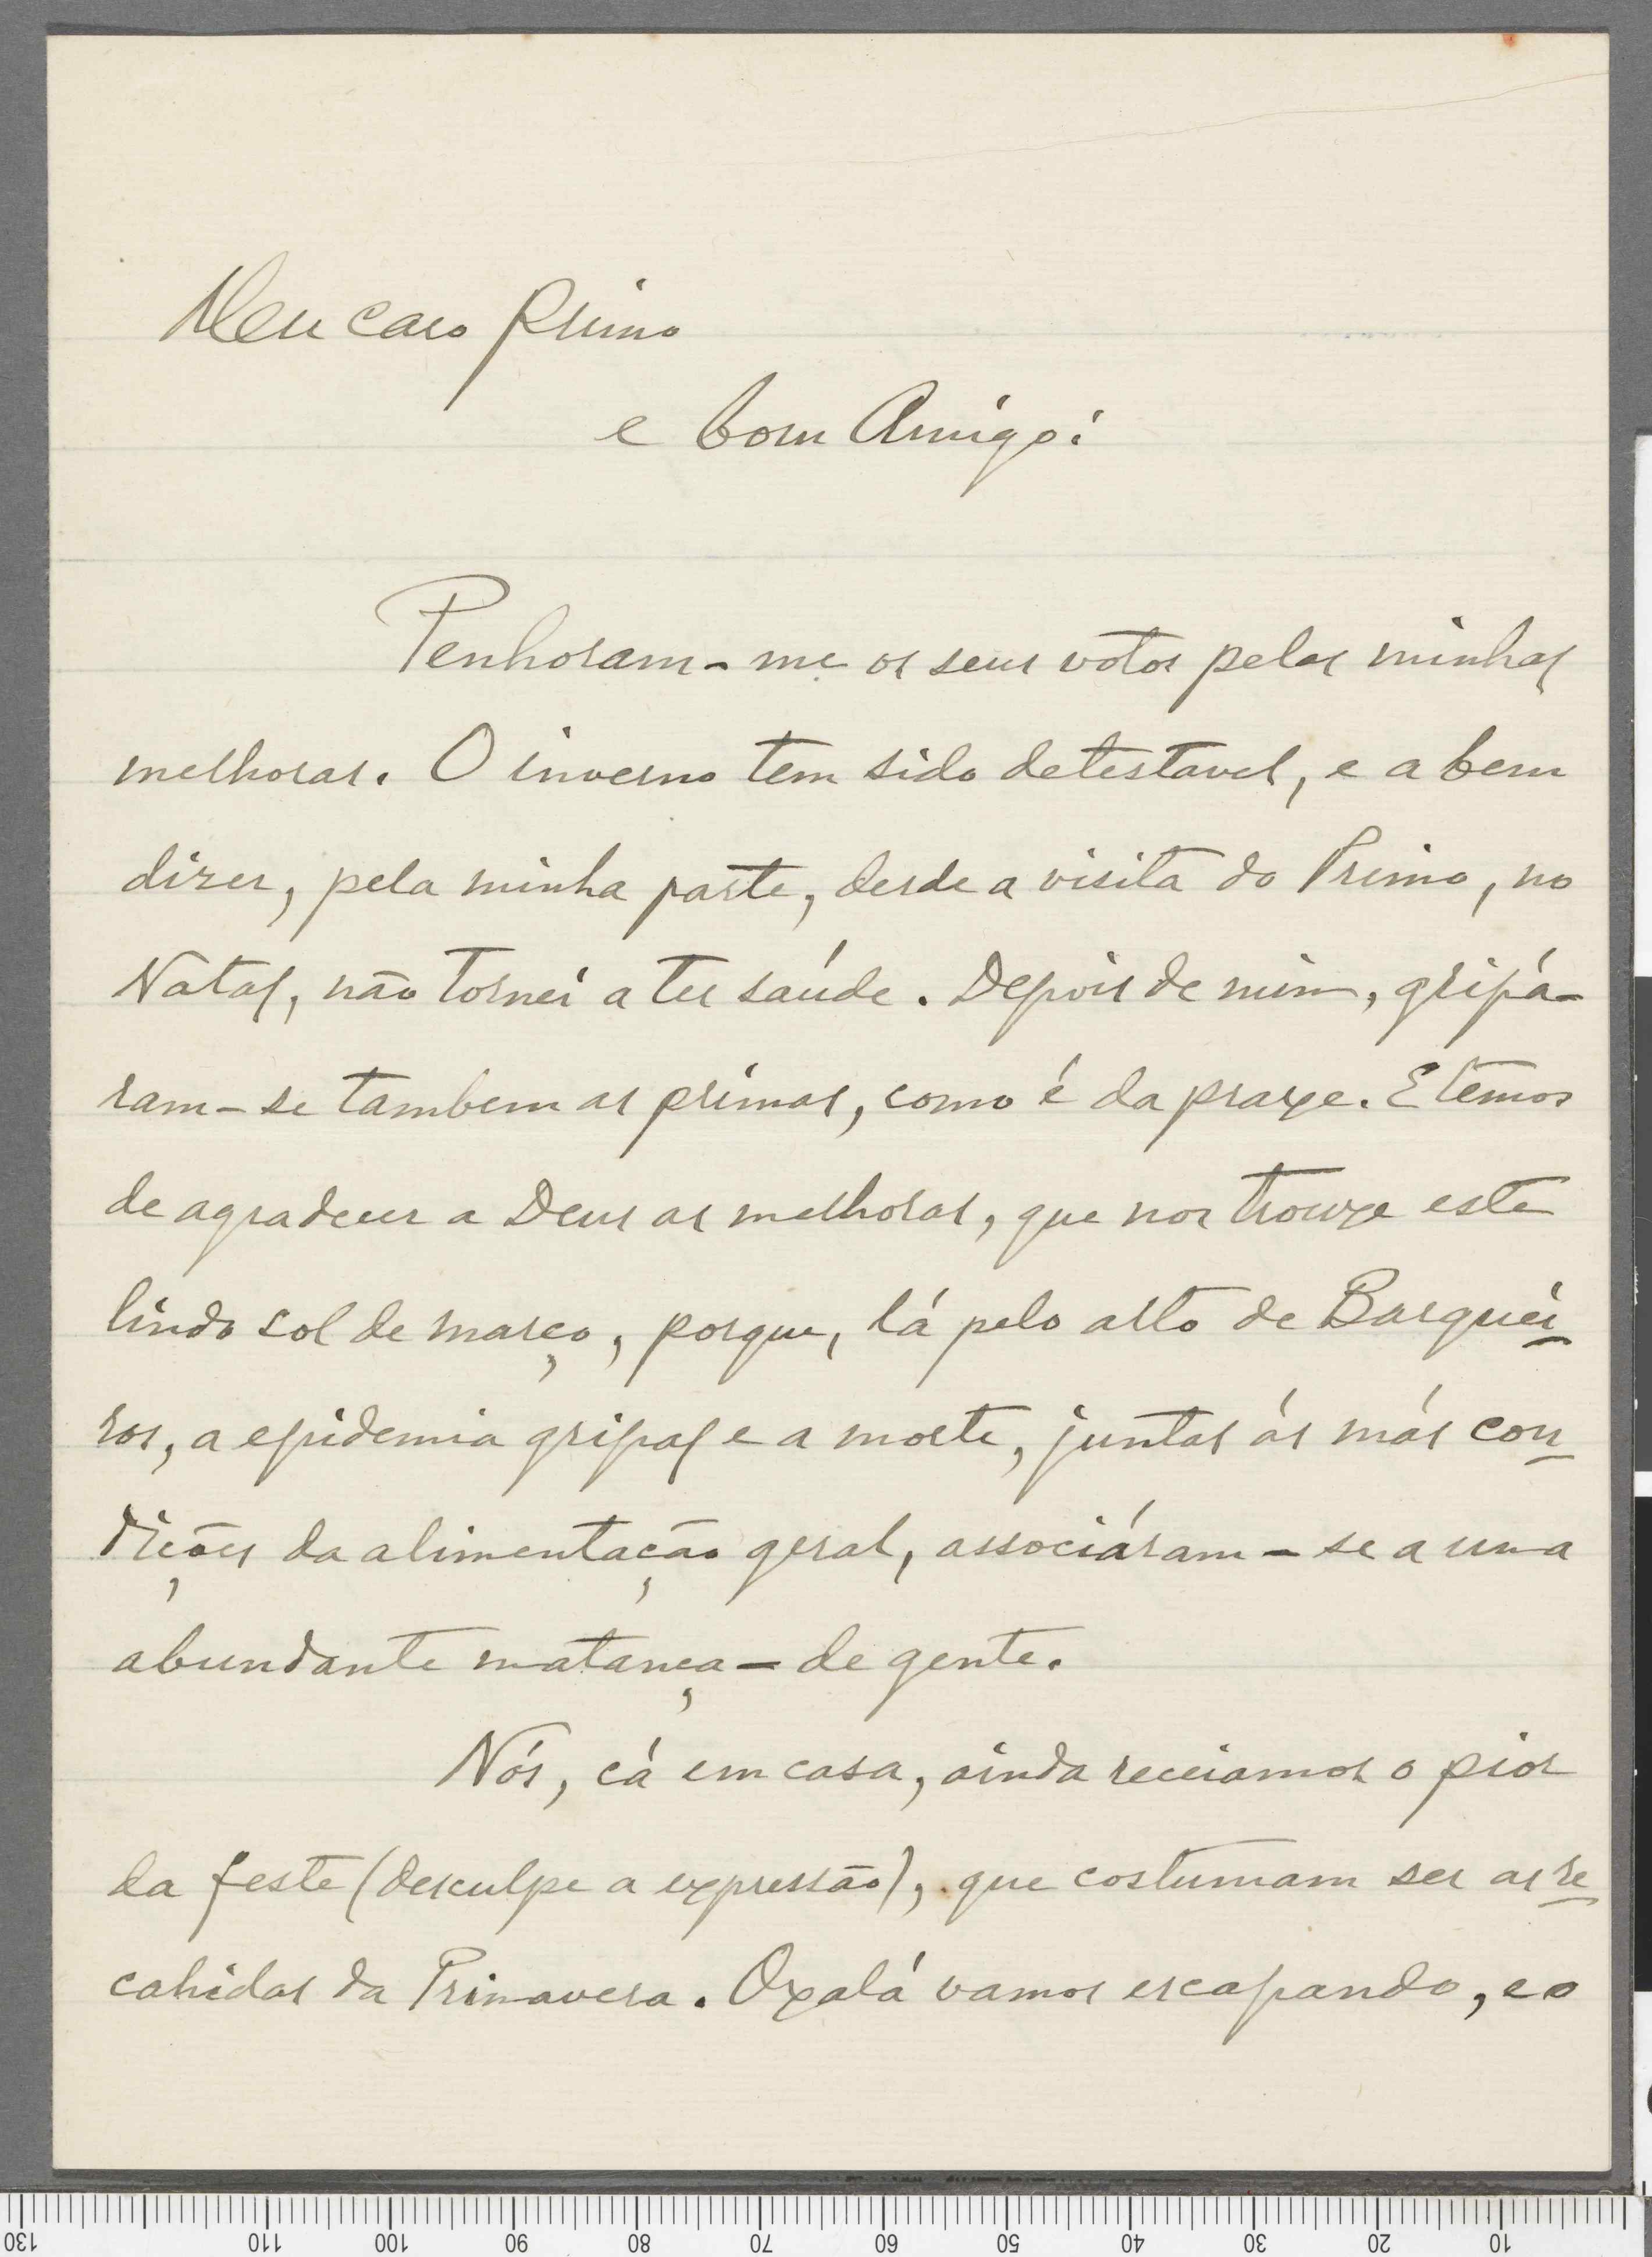 Meu caro Primo
e bom Amigo:
Penhoram-me os seus votos pelas minhas
melhoras. O inverno tem sido detestavel, e a bem
dizer, pela minha parte, desde a visita do Primo, no
Natal, não tornei a ter saúde. Depois de mim, gripá-
ram-se tambem as primas, como é da praxe. E temos
de agradecer a Deus as melhoras, que nos trouxe este
lindo sol de março, porque, lá pelo alto de Barquei
ros, a epidemia gripal e a morte, juntas ás más con
dições da alimentação geral, associáram-se a uma
abundante matança - de gente.
Nós, cá em casa, ainda receiamos o pior
da feste (desculpe a expressão), que costumam ser as re
cahidas da Primavera. Oxalá vamos escapando, e o
130 110 100 90 80 70 60 50 40 30 20 10